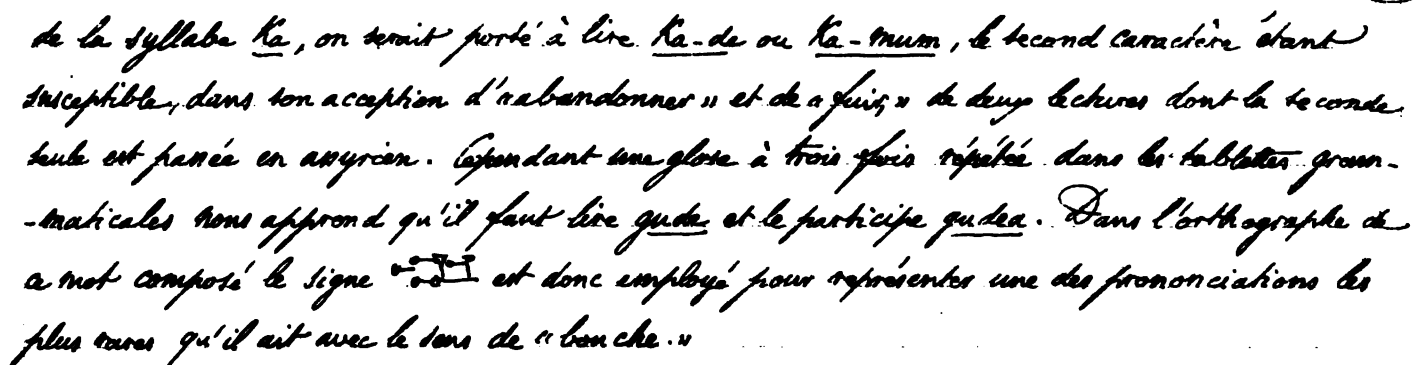 de la syllabe Ka, on serait porté à lire Ka-de ou Ka-mum, le second caractère étant
susceptible, dans son acception d'«abandonner» et de «fuir,» de deux lectures dont la seconde
seule est passée en assyrien. Cependant une glose à trois fois répétée dans les tablettes gram-
-maticales nous apprend qu'il faut lire gude et le participe gudea. Dans l'orthographe de
ce mot composé le signe est donc employé pour représenter une des prononciations les
plus rares qu'il ait avec le sens de «bouche.»